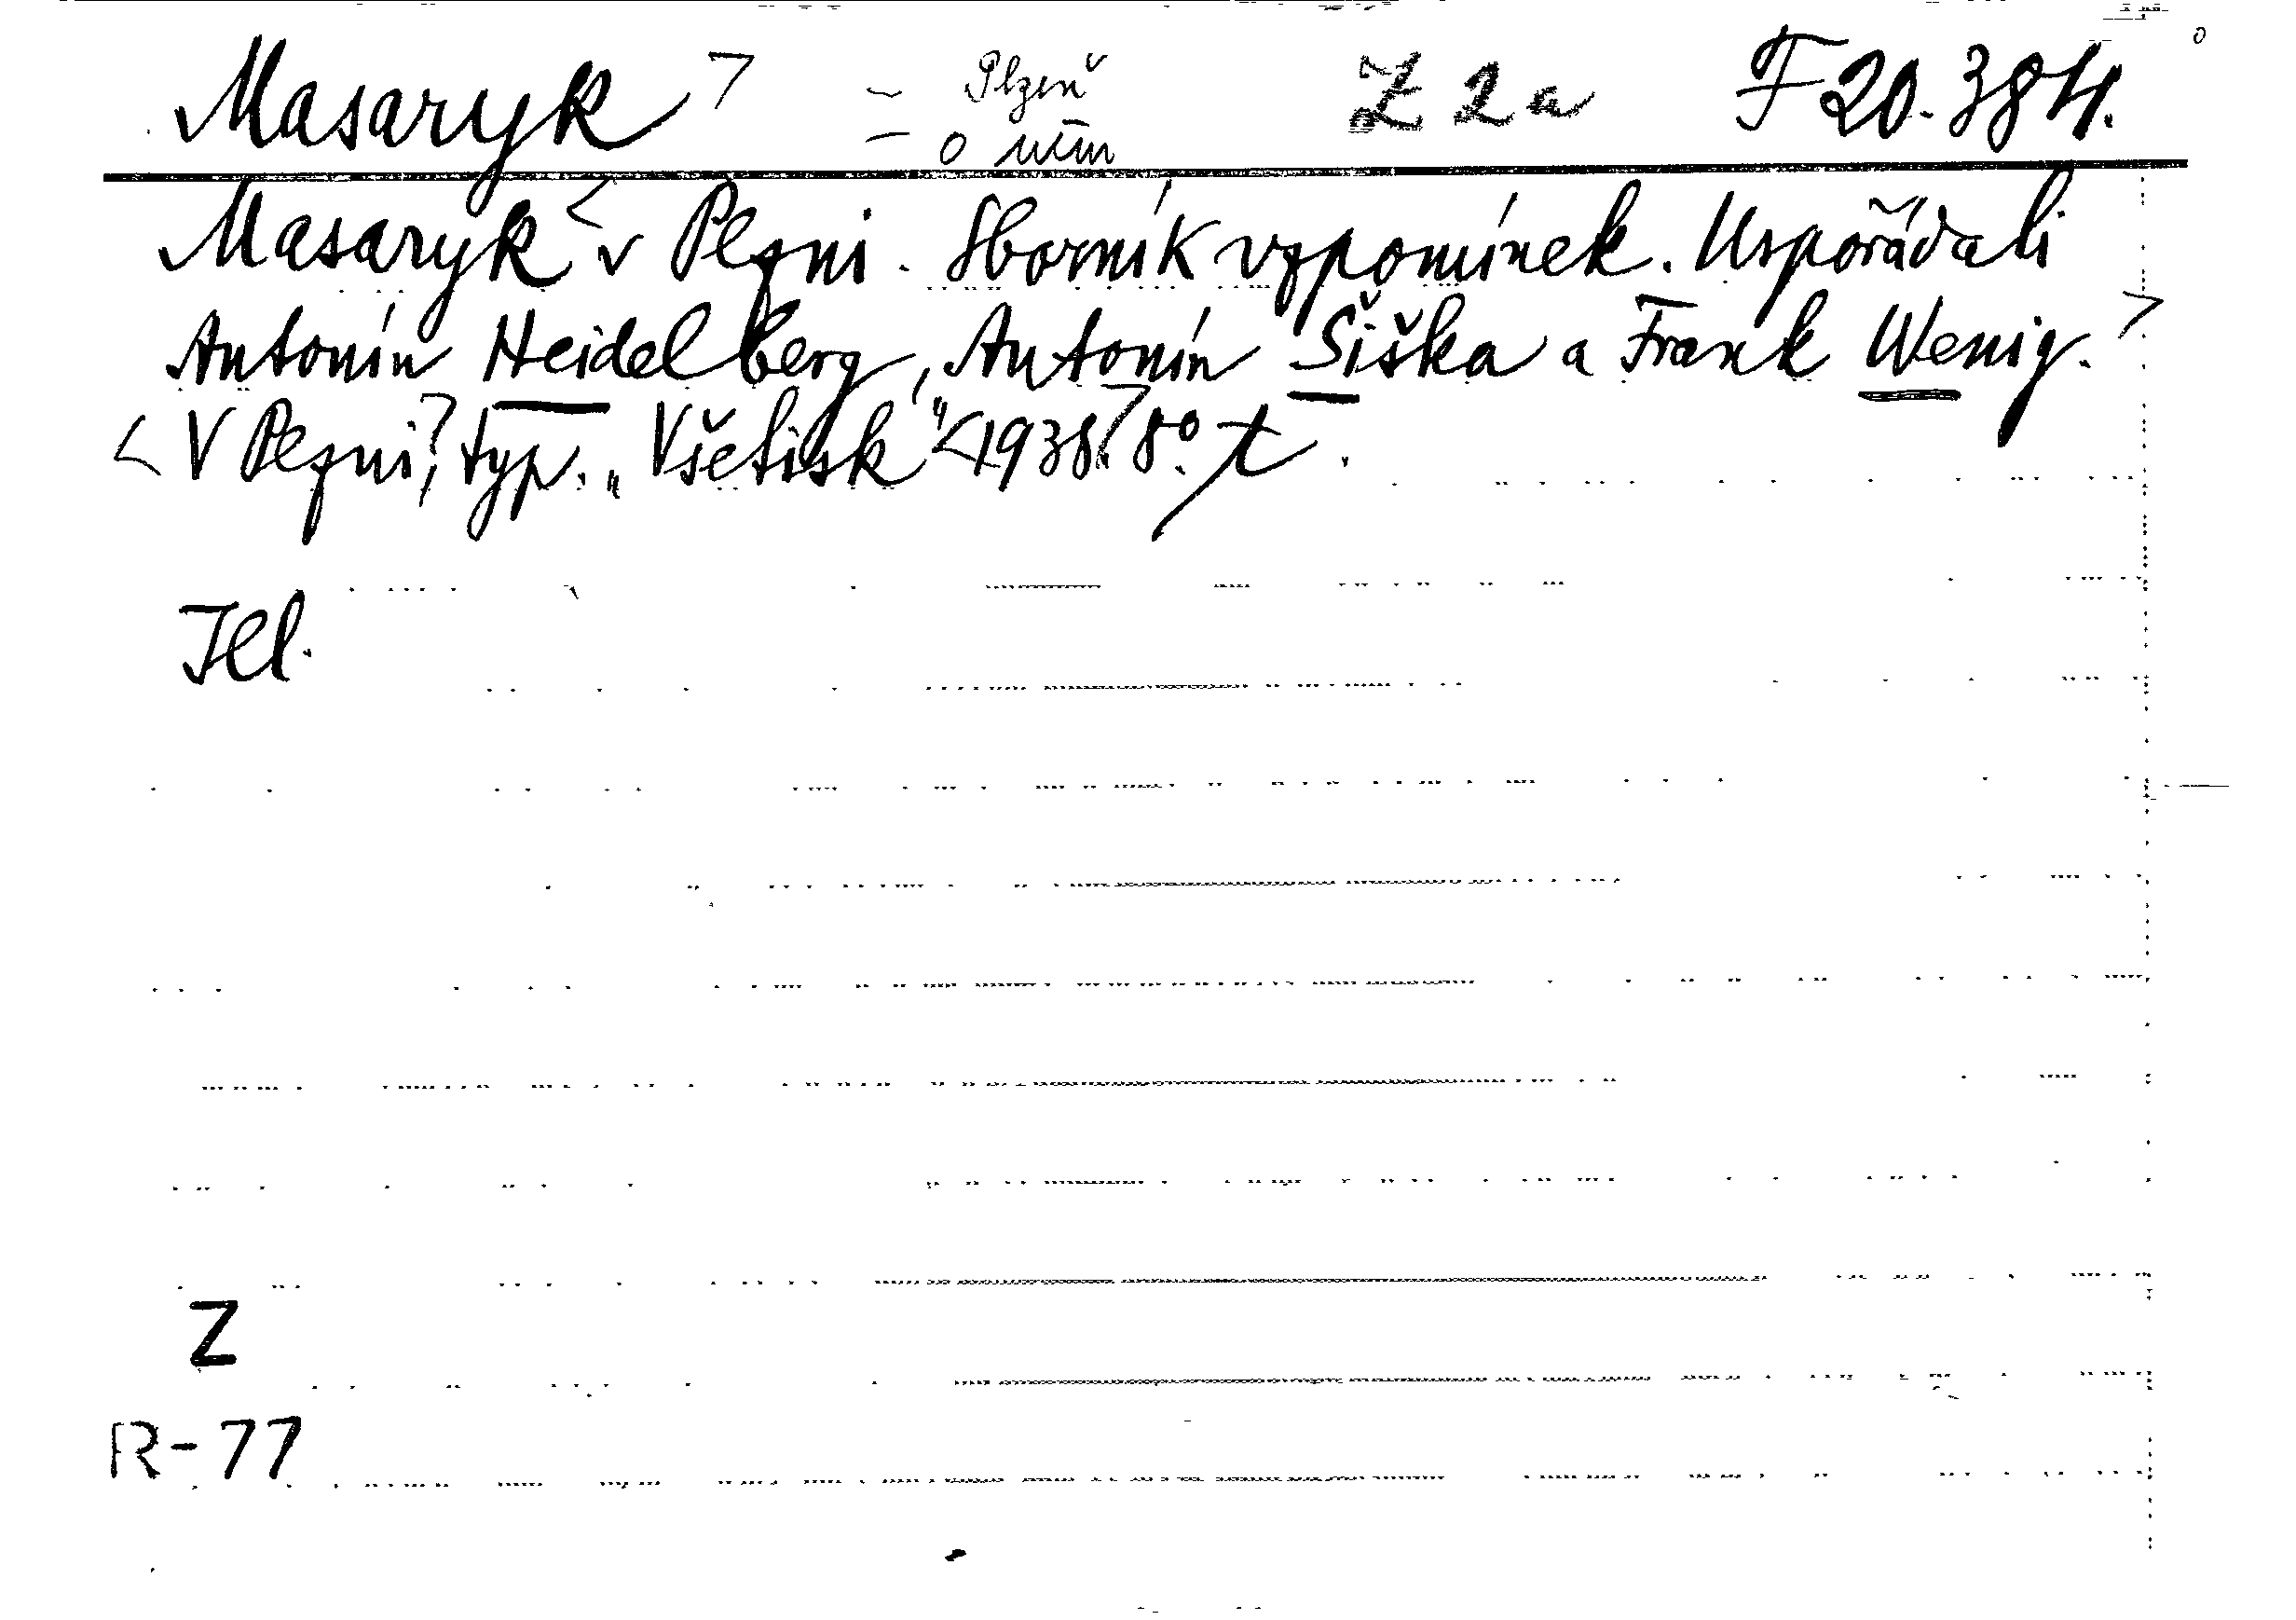 Masaryk > – Plzeň Z 2a F 20.384.
– o něm
Masaryk < v Plzni. Sborník vzpomínek. Uspořádali
Antonín Heidelberg, Antonín Šiška a Frank Wenig. >
< V Plzni >, typ. „Všetisk“ < 1938. > 8°. t.
Z
R-77